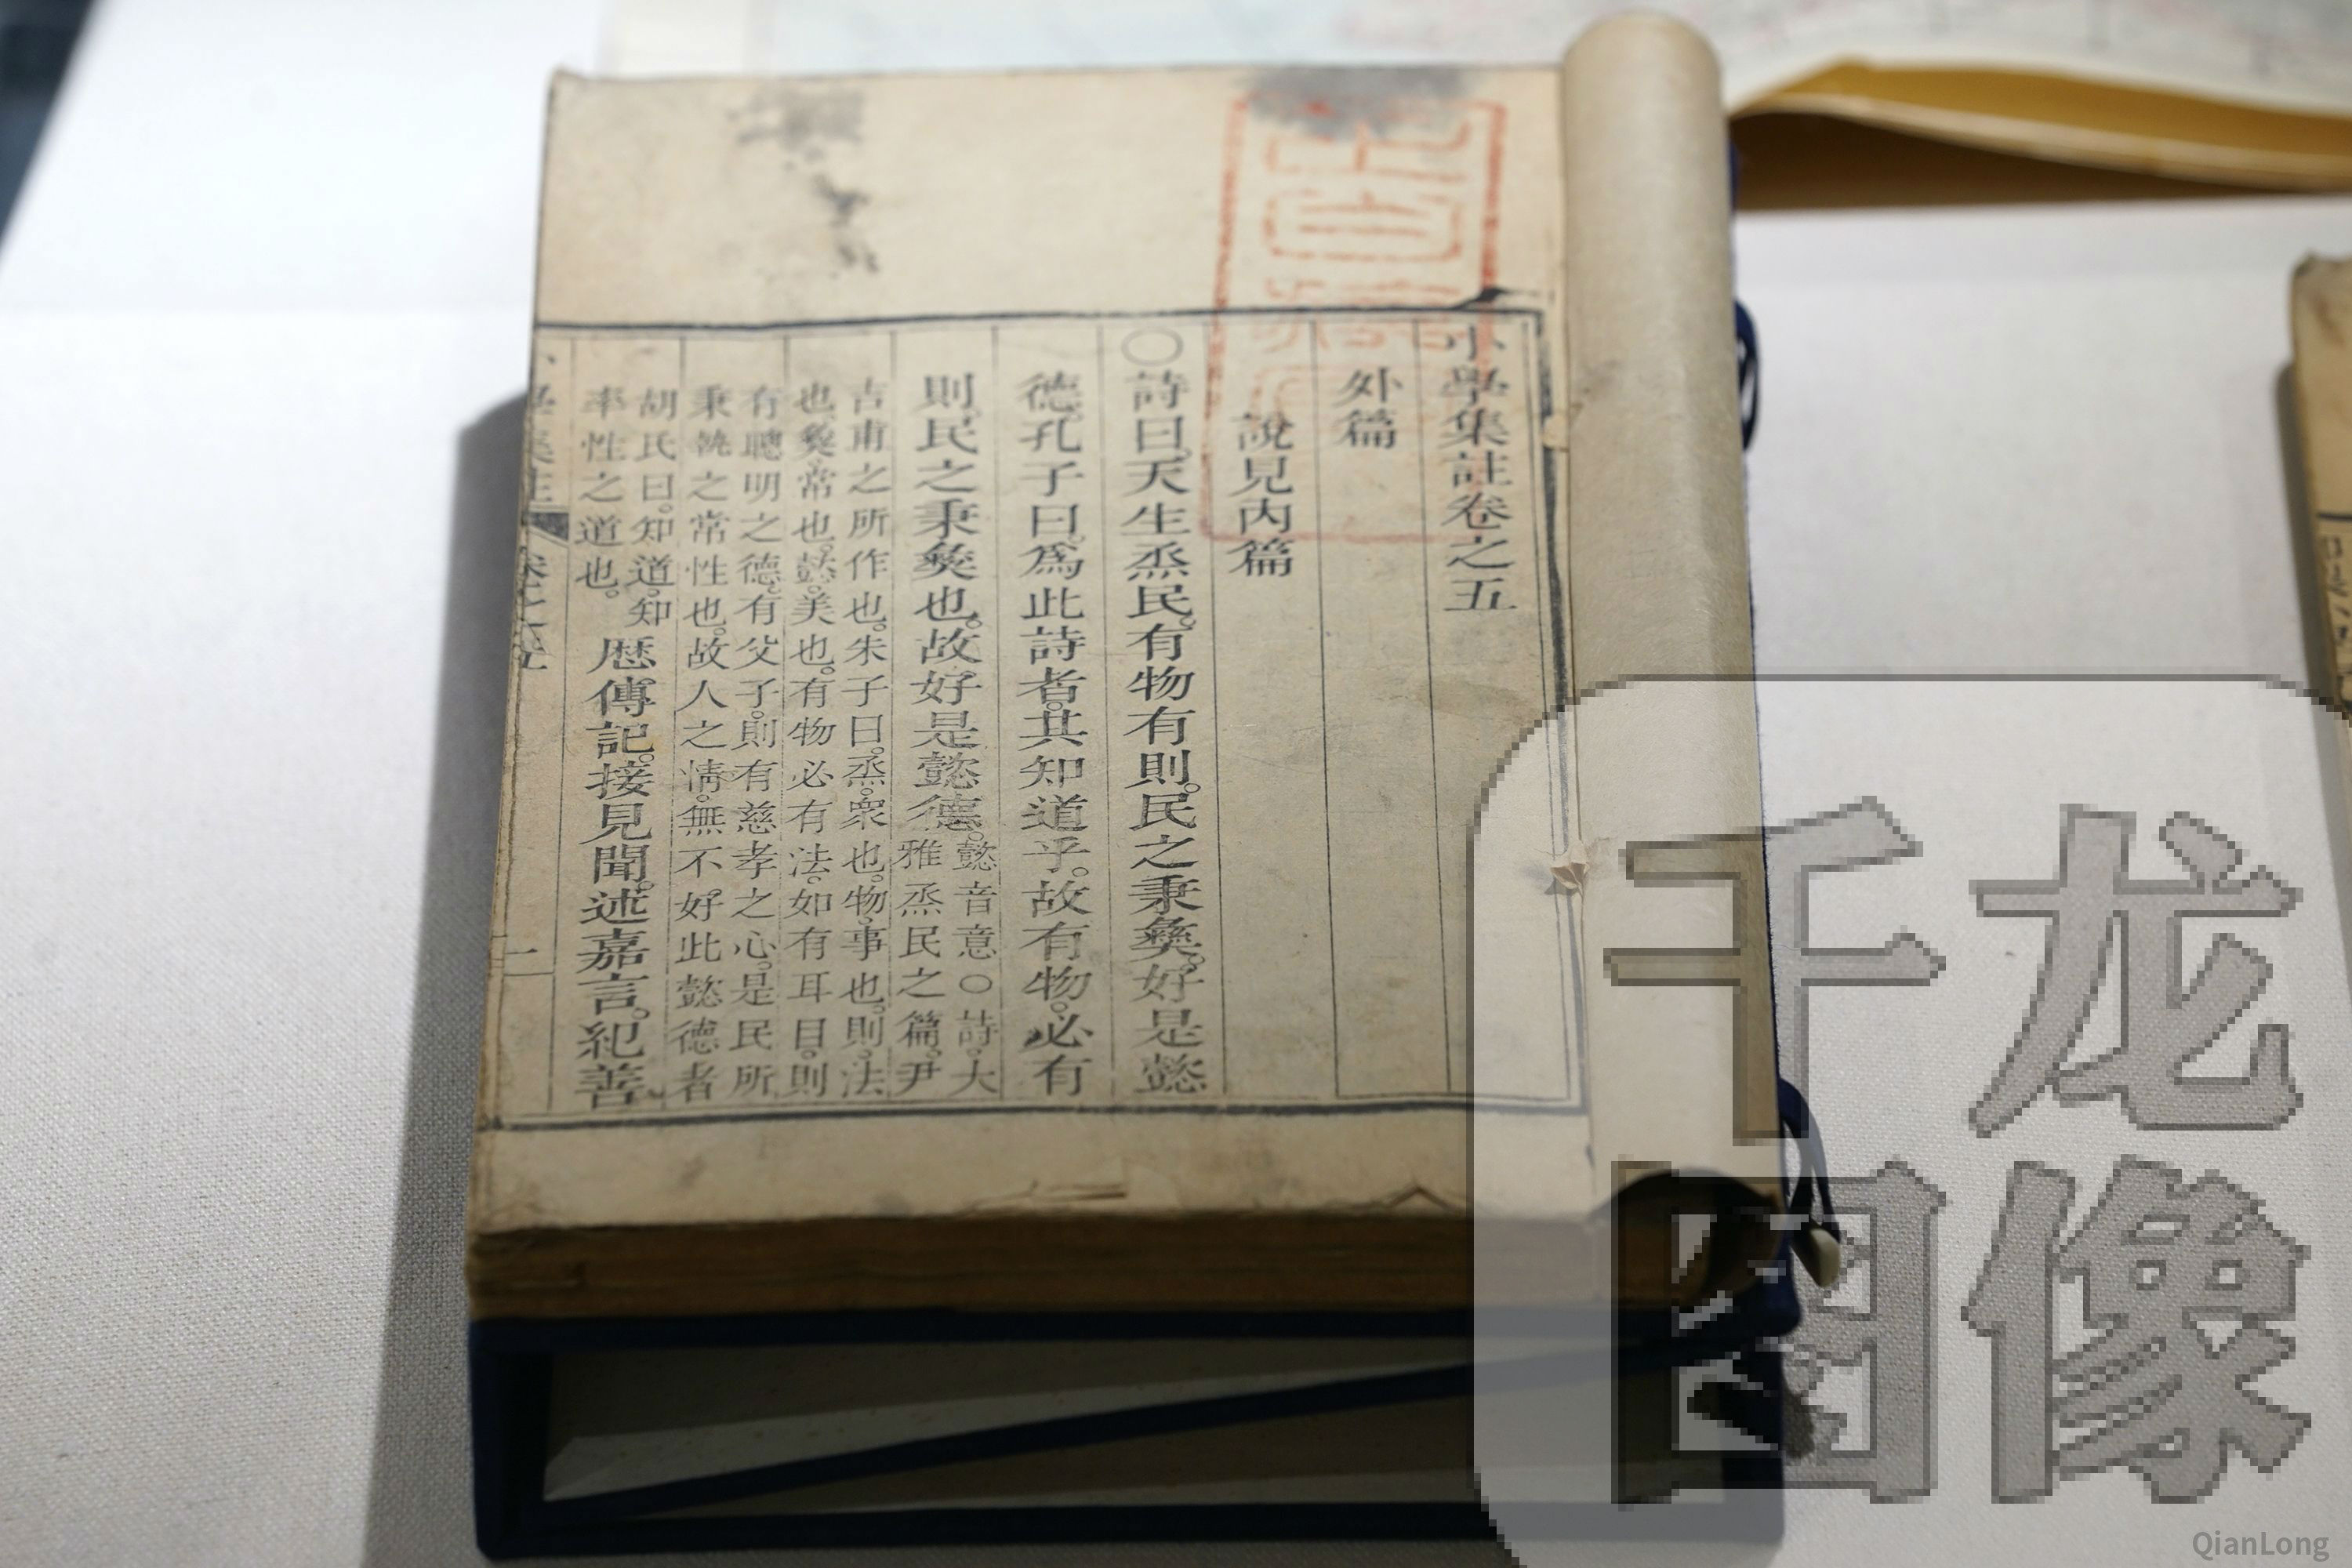 小學集註卷之五
外篇
說見内篇
○詩曰。天生烝民。有物有則。民之秉彝。好是懿
德。孔子曰。爲此詩者。其知道乎。故有物。必有
則。民之秉彝也。故好是懿德。
懿音意○詩。大
雅烝民之篇。尹
吉甫之所作也。朱子曰。烝。衆也。物。事也。則。法
也。彝。常也。懿。美也。有物必有法。如有耳目。則
有聰明之德。有父子。則有慈孝之心。是民所
秉執之常性也。故人之情。無不好此懿德者
胡氏曰。知道。知
率性之道也。
歷傳記。接見聞。述嘉言。紀善
小學集註
卷之五
一
千龙
图像
QianLong